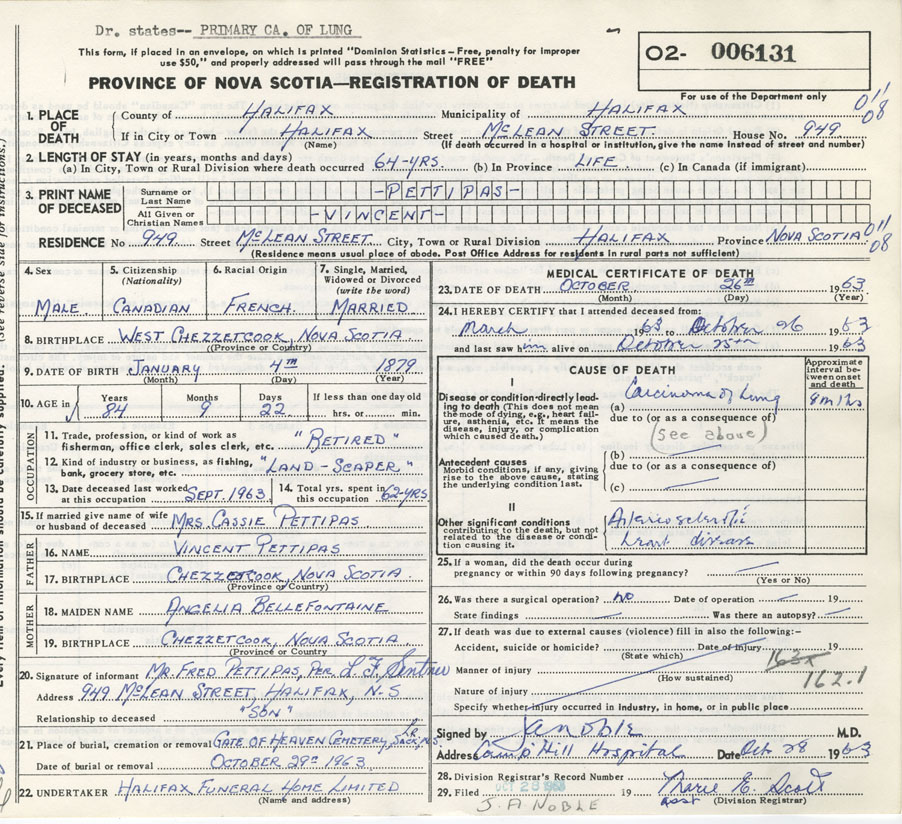 Dr. states-- PRIMARY CA. OF LUNG
This form, if placed in an envelope, on which is printed "Dominion Statistics – Free, penalty for improper
use $50," and properly addressed will pass through the mail "FREE"
PROVINCE OF NOVA SCOTIA—REGISTRATION OF DEATH
O2- 006131
For use of the Department only
011
08
1. PLACE OF DEATH County of HALIFAX Municipality of HALIFAX
If in City or Town HALIFAX Street McLEAN STREET. House No. 949
(Name) (If death occurred in a hospital or institution, give the name instead of street and number)
2. LENGTH OF STAY (in years, months and days)
(a) In City, Town or Rural Division where death occurred 64-YRS. (b) In Province LIFE. (c) In Canada (if immigrant)
3. PRINT NAME OF DECEASED
Surname or Last Name -PETTIPAS-
All Given or Christian Names -VINCENT-
RESIDENCE No 949 Street McLEAN STREET. City, Town or Rural Division HALIFAX Province NOVA SCOTIA 011
08
(Residence means usual place of abode. Post Office Address for residents in rural parts not sufficient)
4. Sex MALE
5. Citizenship (Nationality) CANADIAN
6. Racial Origin FRENCH.
7. Single, Married, Widowed or Divorced (write the word) MARRIED
8. BIRTHPLACE WEST CHEZZETCOOK, NOVA SCOTIA
(Province or Country)
9. DATE OF BIRTH JANUARY 4TH 1879
(Month) (Day) (Year)
10. AGE in Years 84 Months 9 Days 22 If less than one day old hrs. or min.
OCCUPATION
11. Trade, profession, or kind of work as
fisherman, office clerk, sales clerk, etc. "RETIRED"
12. Kind of industry or business, as fishing,
bank, grocery store, etc. "LAND-SCAPER"
13. Date deceased last worked at this occupation SEPT. 1963
14. Total yrs. spent in this occupation 62-YRS
15. If married give name of wife
or husband of deceased MRS. CASSIE PETTIPAS
FATHER
16. NAME VINCENT PETTIPAS
17. BIRTHPLACE CHEZZETCOOK, NOVA SCOTIA.
(Province or Country)
MOTHER
18. MAIDEN NAME ANGELIA BELLEFONTAINE
19. BIRTHPLACE CHEZZETCOOK, NOVA SCOTIA
(Province or Country)
20. Signature of informant MR. FRED PETTIPAS, PER L F
Address 949 McLEAN STREET, HALIFAX, N-S
Relationship to deceased "SON"
21. Place of burial, cremation or removal GATE OF HEAVEN CEMETERY, LR. SACK, N.S.
Date of burial or removal OCTOBER 29TH 1963
22. UNDERTAKER HALIFAX FUNERAL HOME LIMITED
(Name and address)
MEDICAL CERTIFICATE OF DEATH
23. DATE OF DEATH OCTOBER 26TH 1963
(Month) (Day) (Year)
24. I HEREBY CERTIFY that I attended deceased from:
March 1963 to October 26 1963
and last saw him alive on October 25th 1963
CAUSE OF DEATH
Approximate interval between onset and death
I
Disease or condition-directly leading to death (This does not mean the mode of dying, e.g., heart failure, asthenia, etc. It means the disease, injury, or complication which caused death.)
(a) Carcinoma of Lung 8 mths
due to (or as a consequence of)
(see above)
Antecedent causes
Morbid conditions, if any, giving rise to the above cause, stating the underlying condition last.
(b)
due to (or as a consequence of)
(c)
II
Other significant conditions
contributing to the death, but not related to the disease or condition causing it.
Arteriosclerotic
heart disease
25. If a woman, did the death occur during
pregnancy or within 90 days following pregnancy?
(Yes or No)
26. Was there a surgical operation? NO Date of operation 19
State findings Was there an autopsy?
27. If death was due to external causes (violence) fill in also the following:-
Accident, suicide or homicide? Date of injury 19
(State which)
Manner of injury 163x
(How sustained)
162.1
Nature of injury
Specify whether injury occurred in industry, in home, or in public place
Signed by JA Noble M.D.
Address Camp Hill Hospital Date Oct 28 1963
28. Division Registrar's Record Number
OCT 28 1963
29. Filed 19 Marie E. Scott
asst (Division Registrar)
J. A NOBLE
(See reverse side for instructions.)